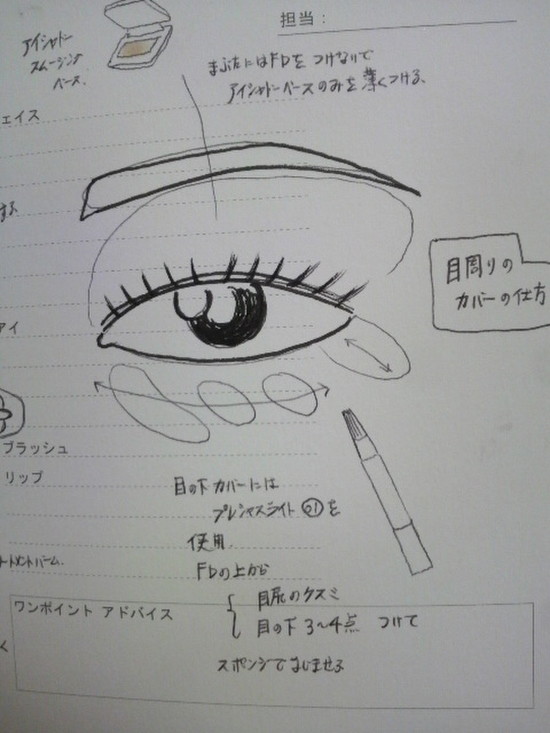 担当：
アイシャドー
スムージング
ベース.
まぶたにはFDをつけないで
アイシャドーベースのみを薄くつける、
ェイス
する
目周りの
カバーの仕方
アイ
ブラッシュ
リップ
目の下カバーには
プレシャスライト 01を
使用.
FDの上から
ートメントバーム.
ワンポイント アドバイス
目尻のクスミ
目の下 3〜4点 つけて
く
スポンジでなじませる